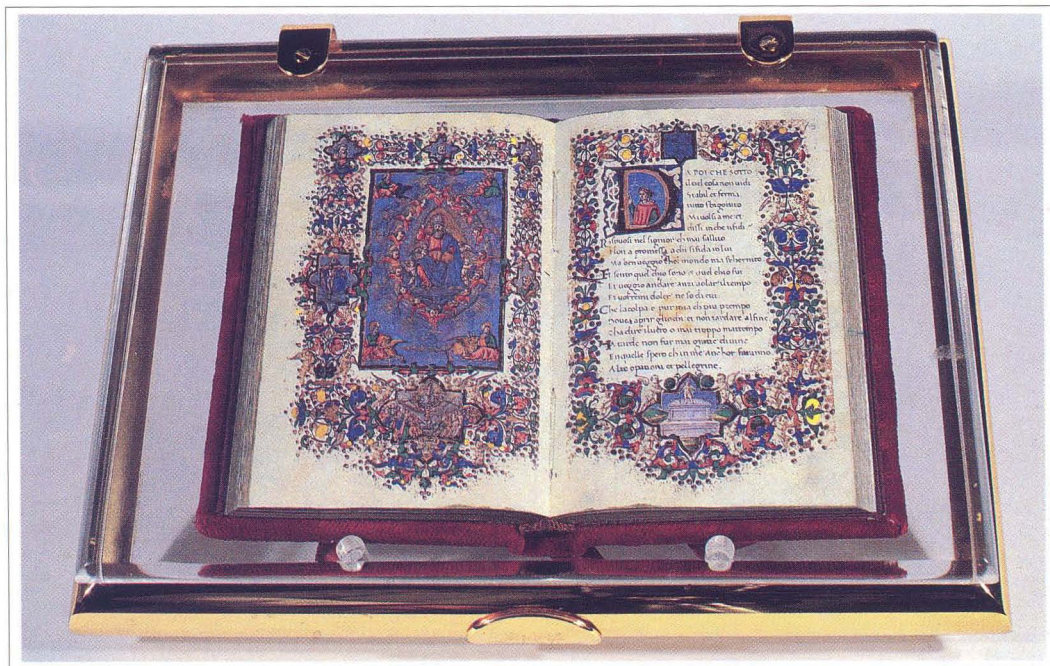 DA POI CHE SOTTO
il ciel cosa non vidi
Stabil et ferma
tutto sbigottito
Mi volsi a me et
dissi in che ti fidi
Risposi nel signor ch mai fallito
Non a promessa a chi si fida in lui
Ma ben veggio chel mondo ma schernito
Et sento quel chio sono et quel chio fui
Et veggio andare anzi volar il tempo
Et doler mi vorrei ne so di cui
Che la colpa e pur mia che piu per tempo
aprir gliocchi et non tardare al fine
cha dire il vero o mai troppo mattempo
Ma tarde non fur mai gratie divine
En quelle spero ch in me anchor faranno
Alte operationi et pellegrine.